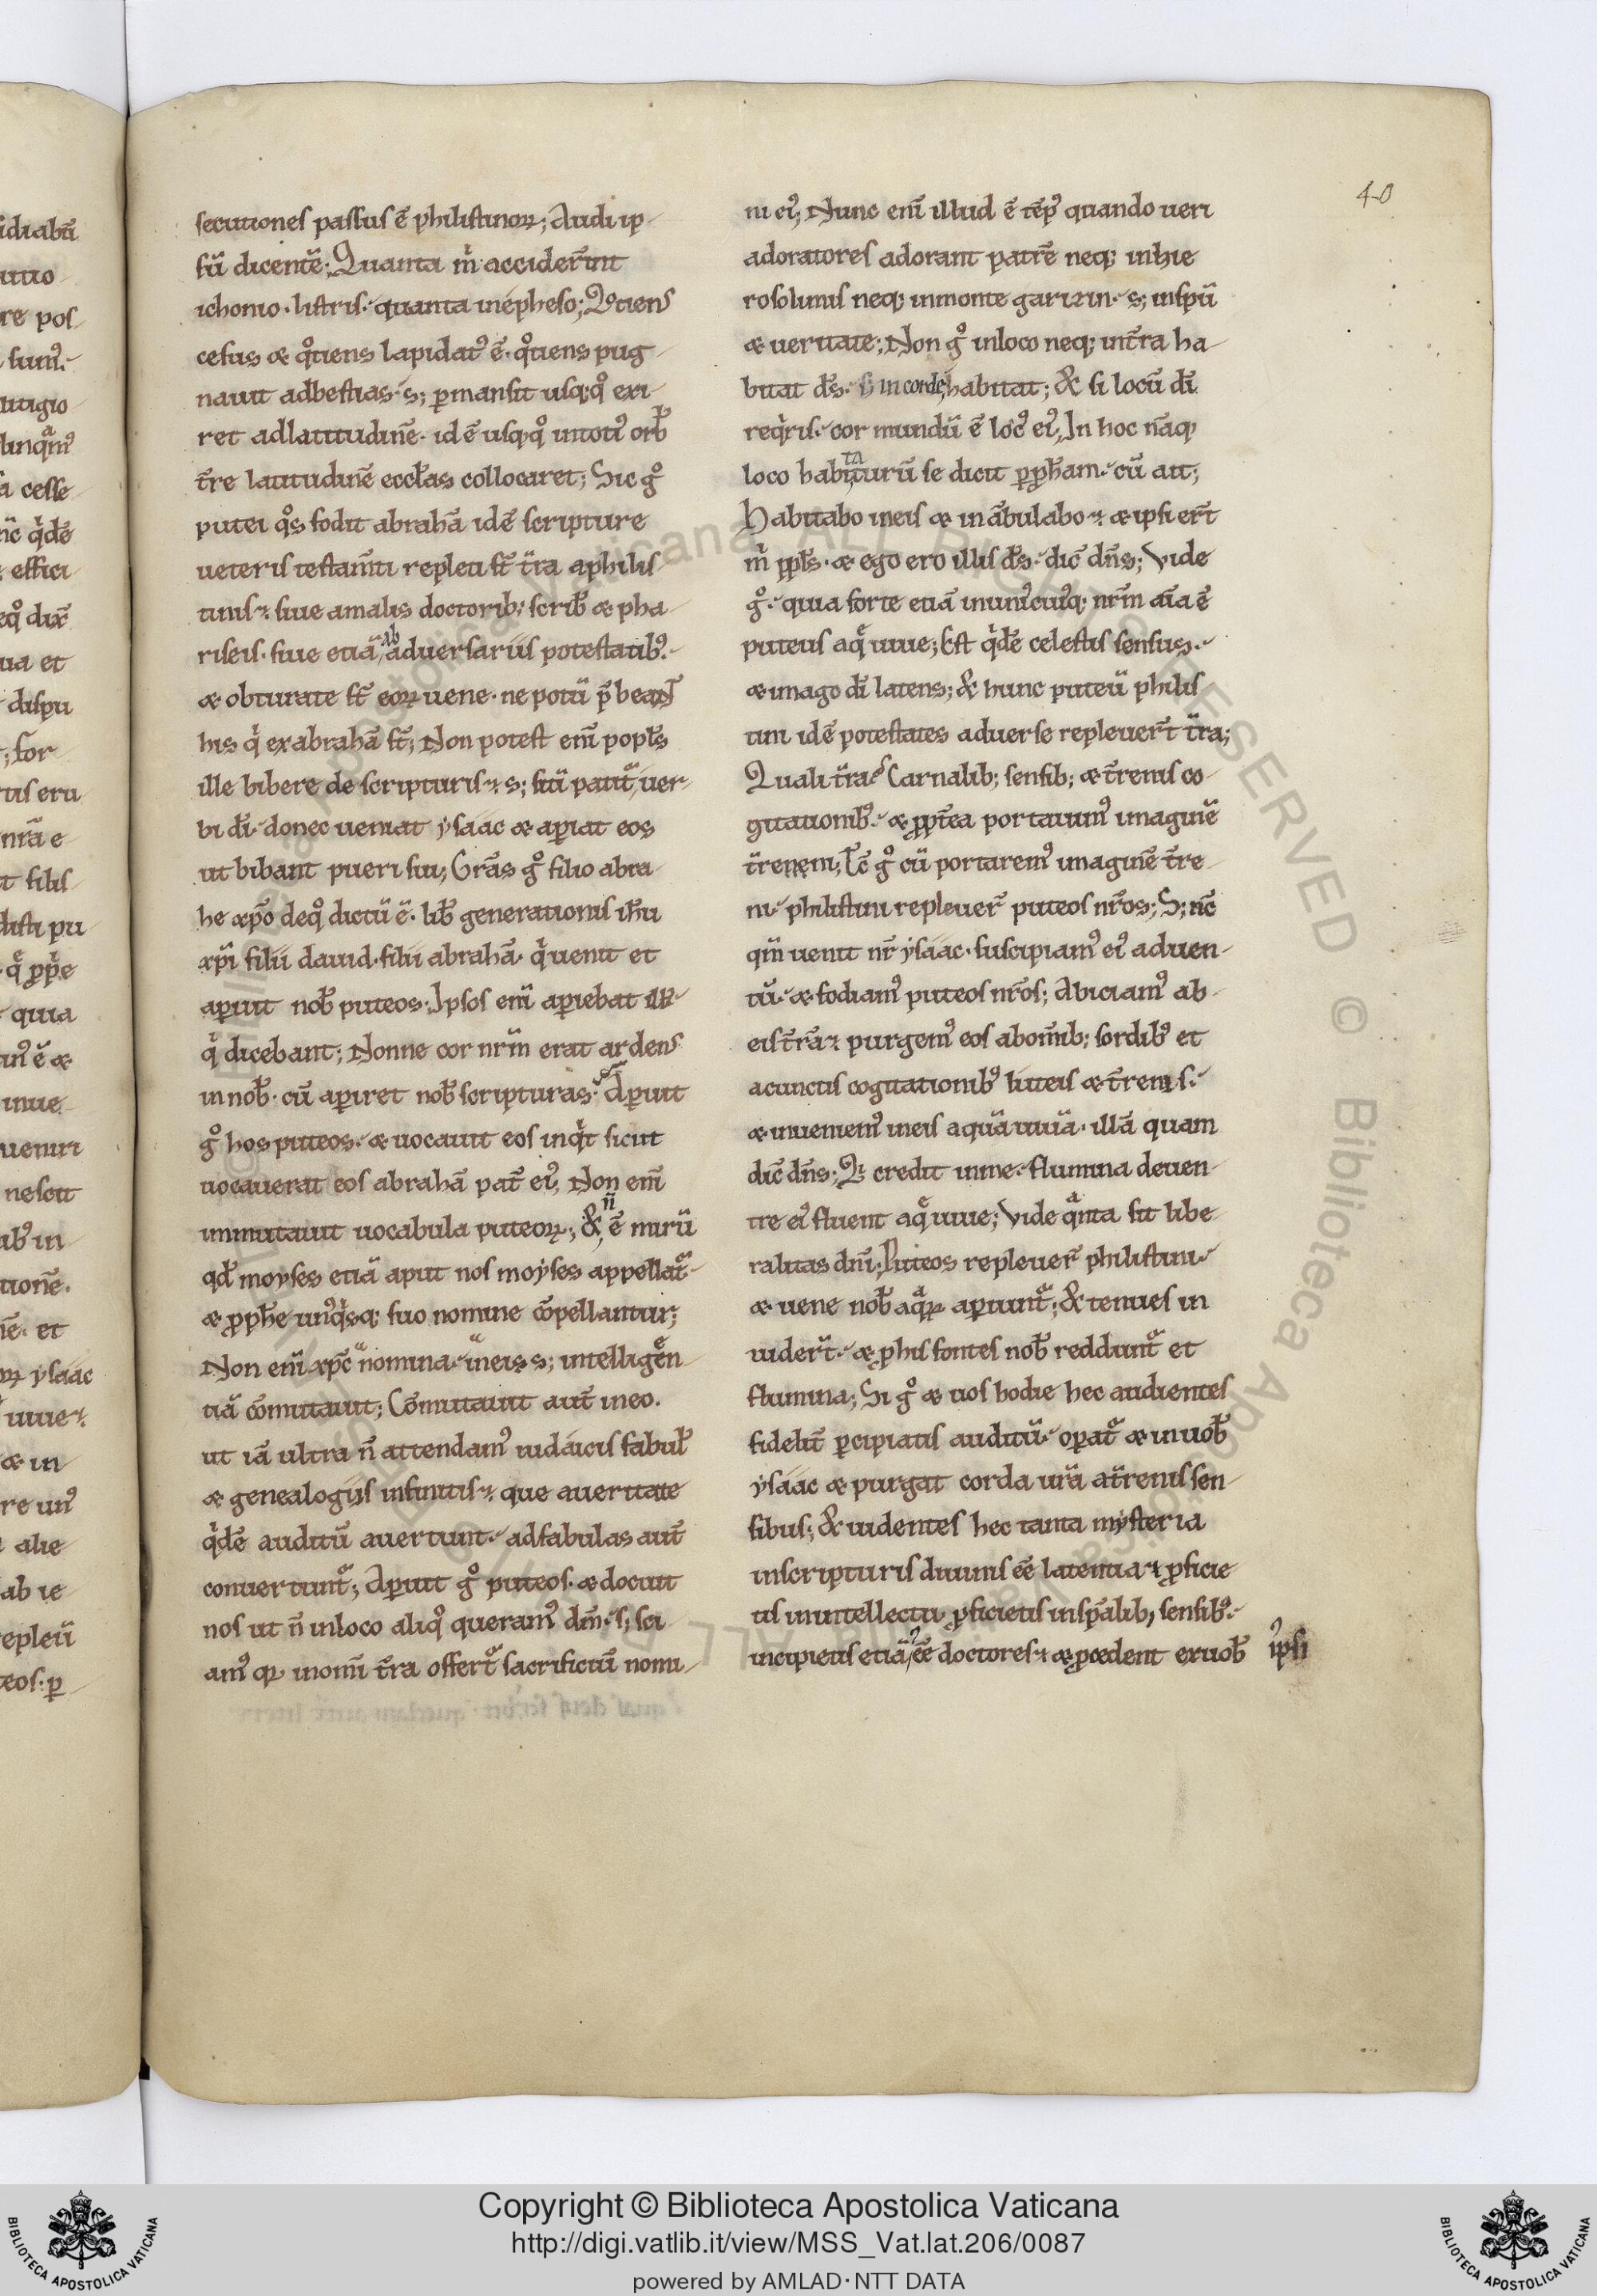 40
secutiones passus ē philistinoꝝ; Audi ip-
sū dicentē; Quanta m̓ acciderīnt
ichonio · listris · quanta in epheso; Quotiens
cesus æ qͦtiens lapidatꝰ ē · qͦtiens pug-
nauit ad bestias · s; ꝑmansit usq; qͦ exi-
ret ad latitudinē · id ē usq; qͦ in totiꝰ orb̄
t̄re latitudinē eccl̄as collocaret; Sic gͦ
putei qͦs fodit abrahā idē scripture
ueteris testam̄ti repleti st̄ t̄ra a philis-
tinis · siue a malis doctorib; scrib̄ æ pha-
riseis · siue etiā ab aduersariis potestatibꝰ ·
æ obturate st̄ eoꝝ uene · ne potū p̄beant
his qͥ ex abrahā st̄; Non potest enī popl̄s
ille bibere de scripturis · s; siti patit᷑ uer-
bi dī · donec ueniat ẏsaac æ aꝑiat eos
ut bibant pueri sui; Gr̄as gͦ filio abra-
he xp̄o de qͦ dictū ē · lib̄ generationis ih̄u
xp̄i filii dauid · filii abrahā · qͥ uenit et
aꝑuit nob̄ puteos; Ipsos enī aꝑiebat
qͥ dicebant; Nonne cor nr̄m erat ardens
in nob̄ · cū aꝑiret nob̄ scripturas · Aꝑuit
gͦ hos puteos · æ uocauit eos inqͥt sicut
uocauerat eos abrahā pat̄ eiꝰ; Non enī
immutauit uocabula puteoꝝ; & n̄ ē mirū
qd̄ moyses etiā aput nos moẏses appellat᷑ ·
æ ꝓph̄e unꝰqͥsq; suo nomine cōpellantur;
Non enī xp̄c nomina · in eis s; intelligen-
tiā cōmutauit; Cōmutauit aut̄ in eo ·
ut iā ultra n̄ attendamꝰ iudaicis fabul̄
æ genealogiis infinitis · que a ueritate
qͥdē auditū auertunt · ad fabulas aut̄
conuertunt᷑; Aꝑuit gͦ puteos · æ docuit
nos ut n̄ in loco aliqͦ queramꝰ dm̄ · s; sci-
amꝰ qꝫ in om̄i t̄ra offert᷑ sacrificiū nomi-
ni eiꝰ; Nunc enī illud ē tēpꝰ quando ueri
adoratores adorant patrē neq; in hie-
rosolimis neq; in monte garizin · s; in sp̄u
æ ueritate; Non gͦ in loco neq; in t̄ra ha-
bitat d̄s · s; in corde habitat; & si locū dī
reqͥris · cor mundū ē locꝰ eiꝰ; In hoc nāq;
loco habitaturū se dicit ꝑ ꝓph̄am · cū ait;
Habitabo in eis æ inābulabo · æ ipsi er̄t
m̓ ppl̄s · æ ego ero illis d̄s · dic̄ dn̄s; Vide
gͦ · quia forte etiā in uniꝰcuiꝰq; nr̄m aīa ē
puteus aq̄ uiue; Est qͥdē celestis sensus ·
æ imago dī latens; & hunc puteū philis-
tini idē potestates aduerse repleuer̄t t̄ra;
Quali t̄ra? Carnalib; sensib; æ t̄renis co-
gitationibꝰ · æ ꝓpt̄ea portauimꝰ imaginē
t̄reni; Tc̄ gͦ cū portaremꝰ imaginē t̄re-
ni · philistini repleuer̄ puteos nr̄os; S; nc̄
qm̄ uenit nr̄ ẏsaac · suscipiamꝰ eiꝰ aduen-
tū · æ fodiamꝰ puteos nr̄os; Abiciamꝰ ab
eis t̄rā · purgemꝰ eos ab om̄ib; sordibꝰ et
a cunctis cogitationibꝰ luteis æ t̄renis ·
æ inueniemꝰ in eis aquā uiuā · illā quam
dic̄ dn̄s; Qͥ credit in me · flumina de uen-
tre eiꝰ fluent aq̄ uiue; Vide qͣnta sit libe-
ralitas dn̄i; Puteos repleuer̄ philistini ·
æ uene nob̄ aqͣꝝ aꝑiunt᷑; & tenues in-
uider̄t · æ ꝓ his fontes nob̄ reddunt᷑ et
flumina; Si gͦ æ uos hodie hec audientes
fidelit̄ ꝑcipiatis auditū · oꝑat᷑ æ in uob̄
ẏsaac æ purgat corda ur̄a a t̄renis sen-
sibus; & uidentes hec tanta mẏsteria
in scripturis diuinis ēē latentia · ꝓficie-
tis in intellectu ꝓficietis in sp̄alib; sensibꝰ ·
incipietis etiā ēē doctores · æ ꝓcedent ex uob̄
ipsi
Copyright © Biblioteca Apostolica Vaticana
http://digi.vatlib.it/view/MSS_Vat.lat.206/0087
powered by AMLAD·NTT DATA